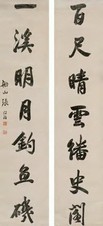 百尺晴雲繙史閣
一溪明月釣魚磯
船山張問陶